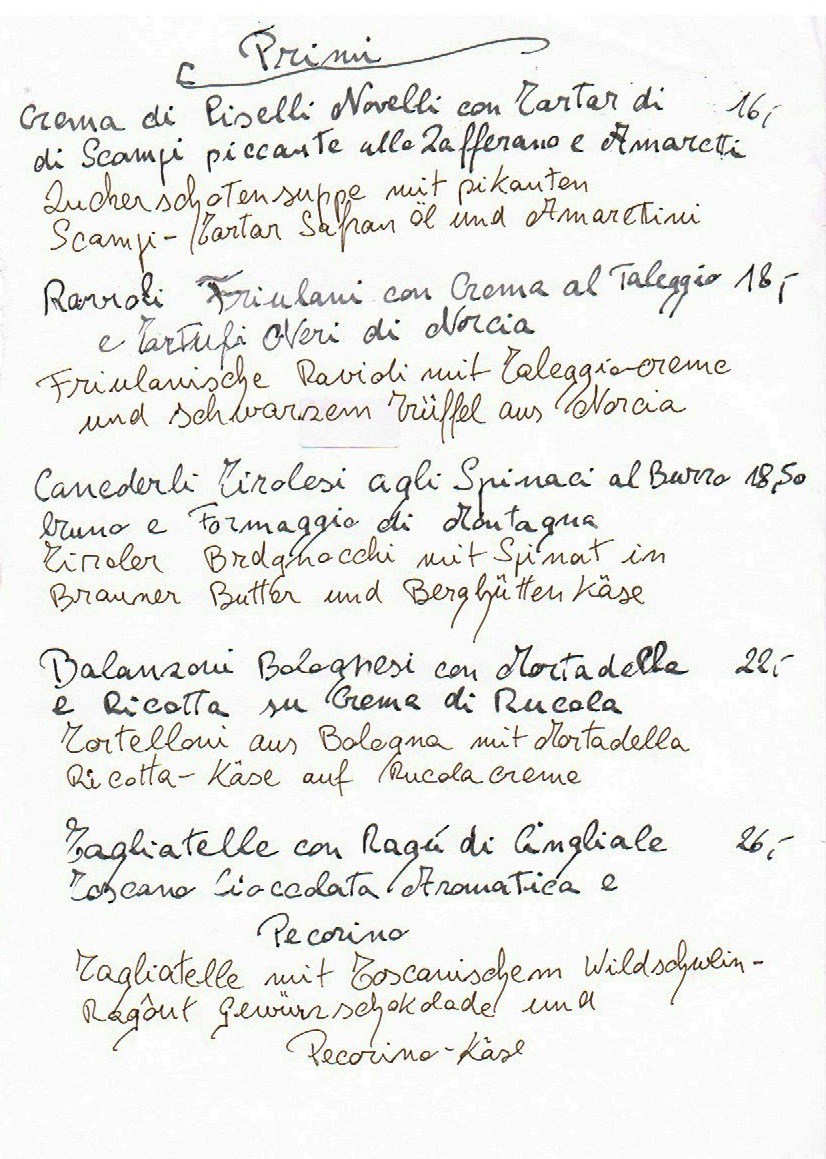 Primi
Crema di Piselli Novelli con Tartar di 16,-
di Scampi piccante allo Zafferano e Amaretti
Zuckerschotensuppe mit pikanten
Scampi-Tartar Safran Öl und Amarettini
Ravioli Friulani con Crema al Taleggio 18,-
e Tartufi Neri di Norcia
Friulanische Ravioli mit Taleggio-creme
und schwarzem Trüffel aus Norcia
Canederli Tirolesi agli Spinaci al Burro 18,50
bruno e Formaggio di Montagna
Tiroler Brdgnocchi mit Spinat in
Brauner Butter und Berghütten Käse
Balanzoni Bolognesi con Mortadella 22,-
e Ricotta su Crema di Rucola
Tortelloni aus Bologna mit Mortadella
Ricotta-Käse auf Rucolacreme
Tagliatelle con Ragú di Cingliale 26,-
Toscano Cioccolata Aromatica e
Pecorino
Tagliatelle mit Toscanischem Wildschwein-
Ragôut Gewürzschokolade und
Pecorino-Käse